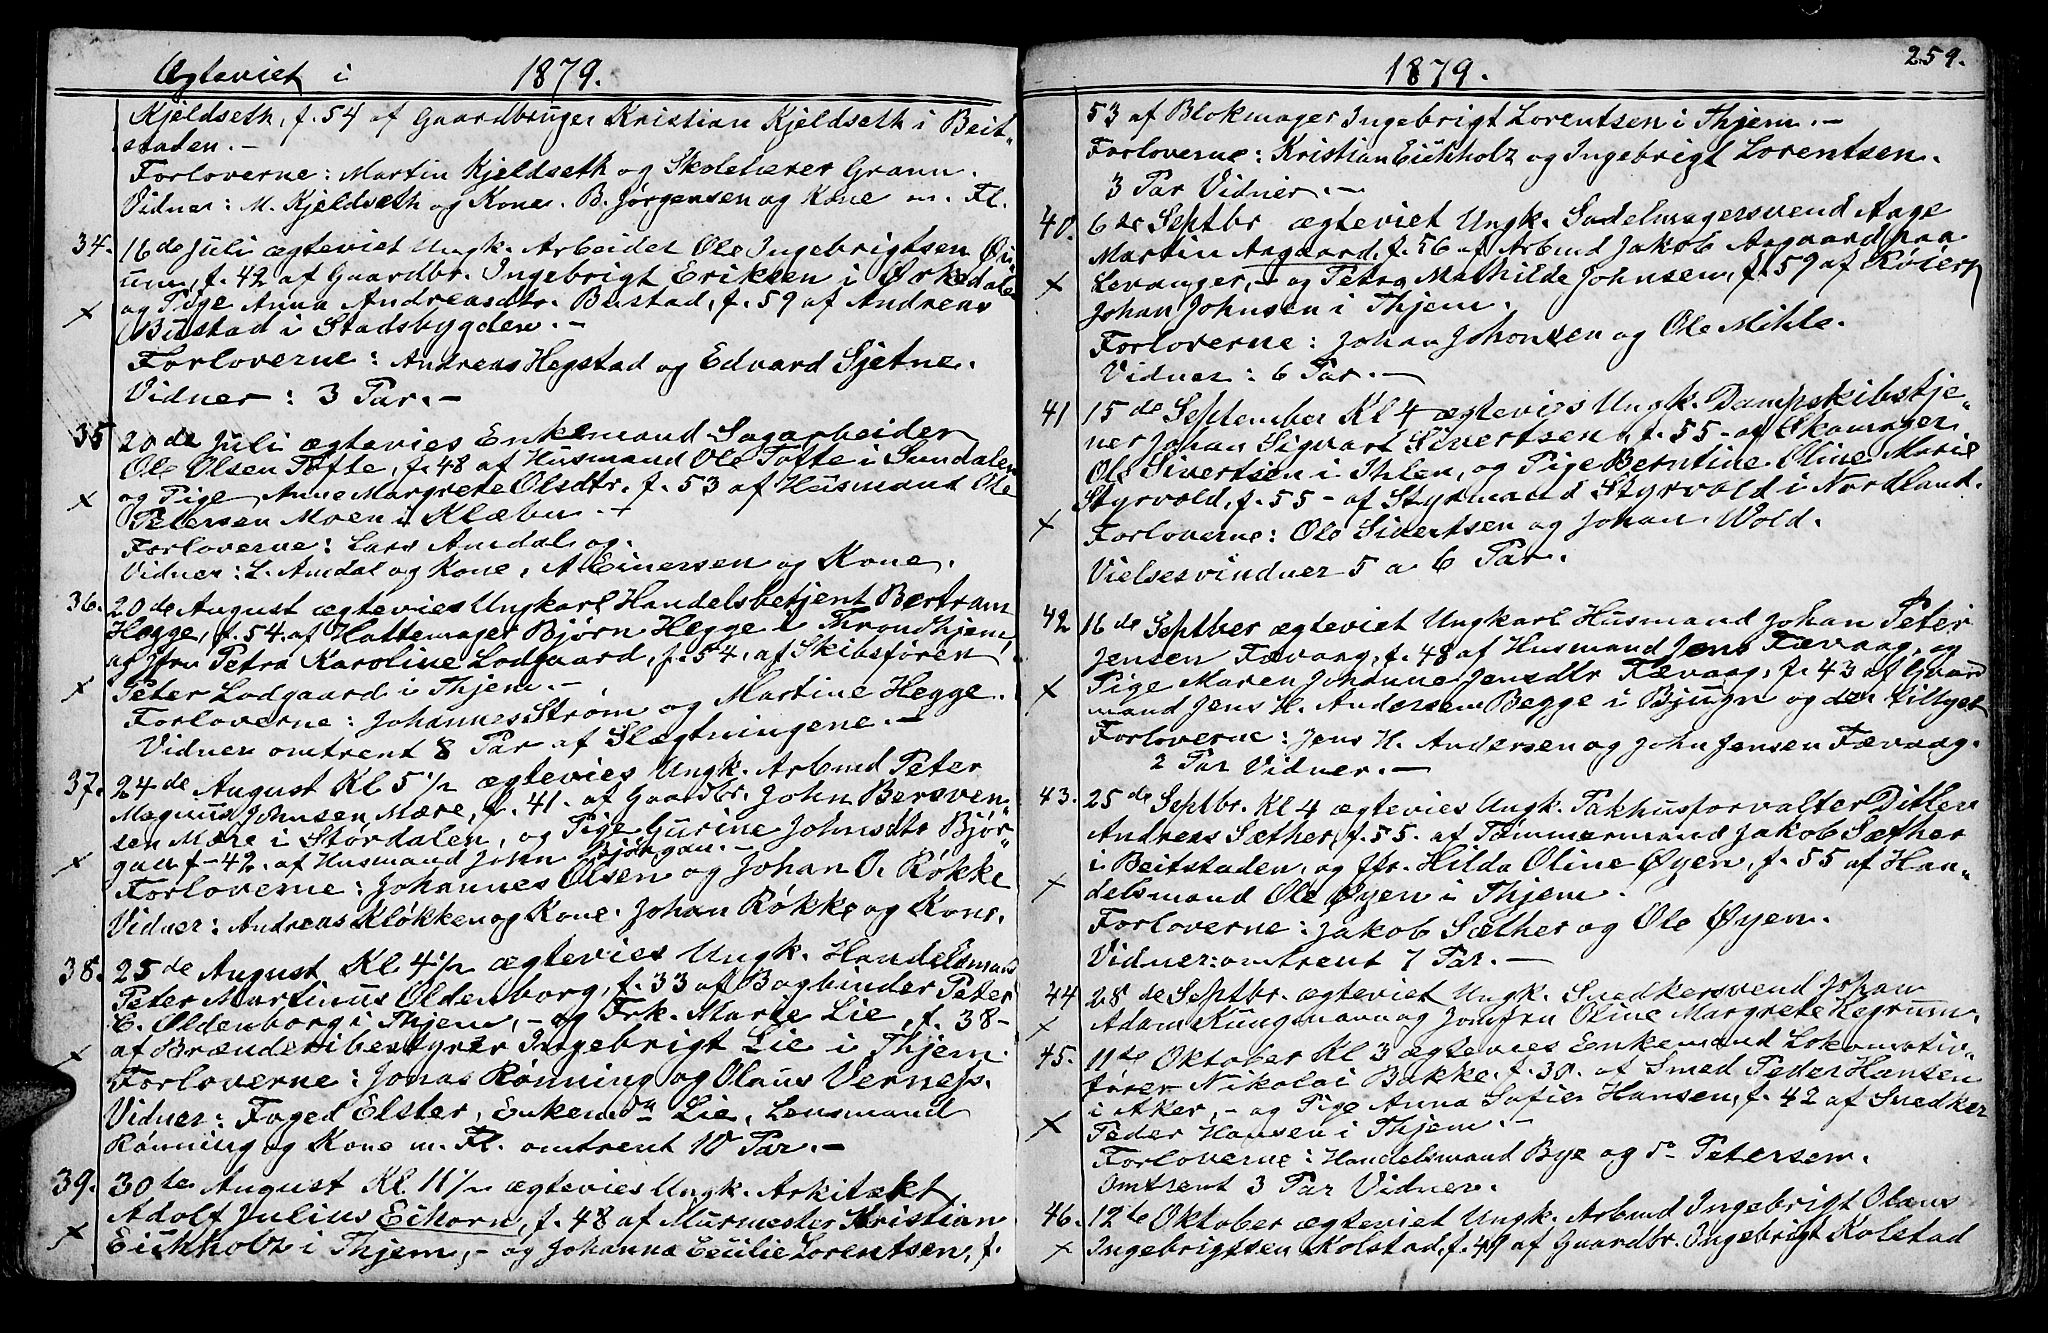 Ægteviet i 1879.
Kjeldseth, f. 54 af Gaardbruger Kristian Kjeldseth i Beit„
staden.-
Forloverne: Martin Kjeldseth og Skolelærer Grann.
Vidner: M. Kjeldseth og Kone. B. Jørgensen og Kone m. Fl.
34. 16de Juli ægteviet Ungk. Arbeider Ole Ingebrigtsen
f. 42 af Gaardbr. Ingebrigt Eriksen i Ørkedalen
og Pige Anna Andreasdtr. Bustad, f. 59 af Andreas
x Bustad i Stadsbygden.-
Forloverne: Andreas Hegstad og Edvard Sjetne.
Vidner: 3 Par.-
35 20de Juli ægtevies Enkemand Sagarbeider
Ole Olsen Tofte, f. 48 af Husmand Ole Tofte i Sundalen
x og Pige Anne Margrete Olsdtr. f. 53 af Husmand Ole
Petersen Moen i Klæbu.-
Forloverne: Lars Amdal og.
Vidner: L. Amdal og Kone, A Einersen og Kone.
36. 20de August ægtevies Ungkarl Handelsbetjent Bertram
Hegge, f. 54. af Hattemager Bjørn Hegge i Throndhjem,
og Jfru Petra Karoline Lodgaard, f. 54, af Skibsfören
x Peter Lodgaard i Thjem.-
Forloverne: Johannes Strøm og Martine Hegge.
Vidner omtrent 8 Par af Slægtningene.-
37. 24de August Kl 5 1/2 ægtevies Ungk. Arbmd Peter
Magnus Johnsen Mære, f. 41. af Gaardbr. John Bersven„
sen Mære i Stordalen, og Pige Gurine Johnsdtr Bjør„
x gan f- 42. af Husmand John Bjørgan.-
Forloverne: Johannes Olsen og Johan O. Røkke
Vidner: Andreas Kløkken og Kone. Johan Røkke og Kone.
38. 25de August Kl 4 1/2 ægtevies Ungk. Handelsmand
Peter Martinus Oldenborg, f. 33 af Bogbinder Peter
C. Oldenborg i Thjem,- og Frk. Marie Lie, f. 38-
x af Brænderibestyrer Ingebrigt Lie i Thjem.
Forloverne: Jonas Rønning og Olaus Verness.
Vidner: Foged Elster, Enkemda Lie, Lensmand
Rønning og Kone m. Fl. omtrent 10 Par.-
39. 30te August Kl 11 1/2 ægtevies Ungk. Arkitækt
Adolf Julius Eihorn, f. 48 af Murmester Kristian
x Eichholz i Thjem,- og Johanna Cecilie Lorentsen, f.
1879. 259.
53 af Blokmager Ingebrigt Lorentsen i Thjem.-
Forloverne: Kristian Eichholz og Ingebrigt Lorentsen.
3 Par Vidner.-
40. 6te Septbr ægteviet Ungk. Sadelmagersvend Aage
Martin Aagaard, f. 56 af Arbmd Jakob Aagaard paa
x Levanger,- og Petra Mathilde Johnsen, f. 59 af Røiert
Johan Johnsen i Thjem.
Forloverne: Johan Johonsen og Ole Mihle.
Vidner: 6 Par.-
41 15de September Kl 4 ægtevies Ungk. Dampskibstje„
ner Johan Sigvart Sivertsen, f. 55- af Skomager
Ole Sivertsen i Ihlen, og Pige Berntine Oline Marie
Styrvold, f. 55- af Styrmand Styrvold i Nordland.
x Forloverne: Ole Sivertsen og Johan Wold.
Vielsesvindner 5 a 6 Par.
42 16de Septber ægteviet Ungkarl Husmand Johan Peter
Jensen Fævaag, f. 48 af Husmand Jens Fævaag, og
x Pige Maren Johanne Jensdtr Fævaag, f. 43 af Gaard
mand Jens H. Andersen Begge i Bjugn og der tillyst
Forloverne: Jens H. Andersen og John Jensen Fævaag.
2 Par Vidner.-
43. 25de Septbr. Kl 4 ægtevies Ungk. Pakhusforvalter Ditlev
Andreas Sæther, f. 55. af Tømmermand Jakob Sæther
i Beitstaden, og Jfr. Hilda Oline Øyen, f. 55 af Han„
x delsmand Ole Øyen i Thjem.
Forloverne: Jakob Sæther og Ole Øyen.
Vidner: omtrent 7 Par.-
44 28de Septbr. ægteviet Ungk. Snedkersvend Johan
x Adam Kungmann og Jomfru Oline Margrete Hegrum.
45. 11te Oktober Kl 3 ægtevies Enkemand Lokomotiv„
fører Nikolai Bakke, f. 38. af Smed Peder Hansen
i Aker,- og Pige Anna Sofie Hansen, f. 42 af Snedker
x Peder Hansen i Thjem.-
Forloverne: Handelsmand Bye og do Petersen.
Omtrent 3 Par Vidner.
46. 12te Oktober ægteviet Ungk. Arbmd Ingebrigt Olaus
x Ingebrigtsen Kolstad, f. 49 af Gaardbr. Ingebrigt Kolstad